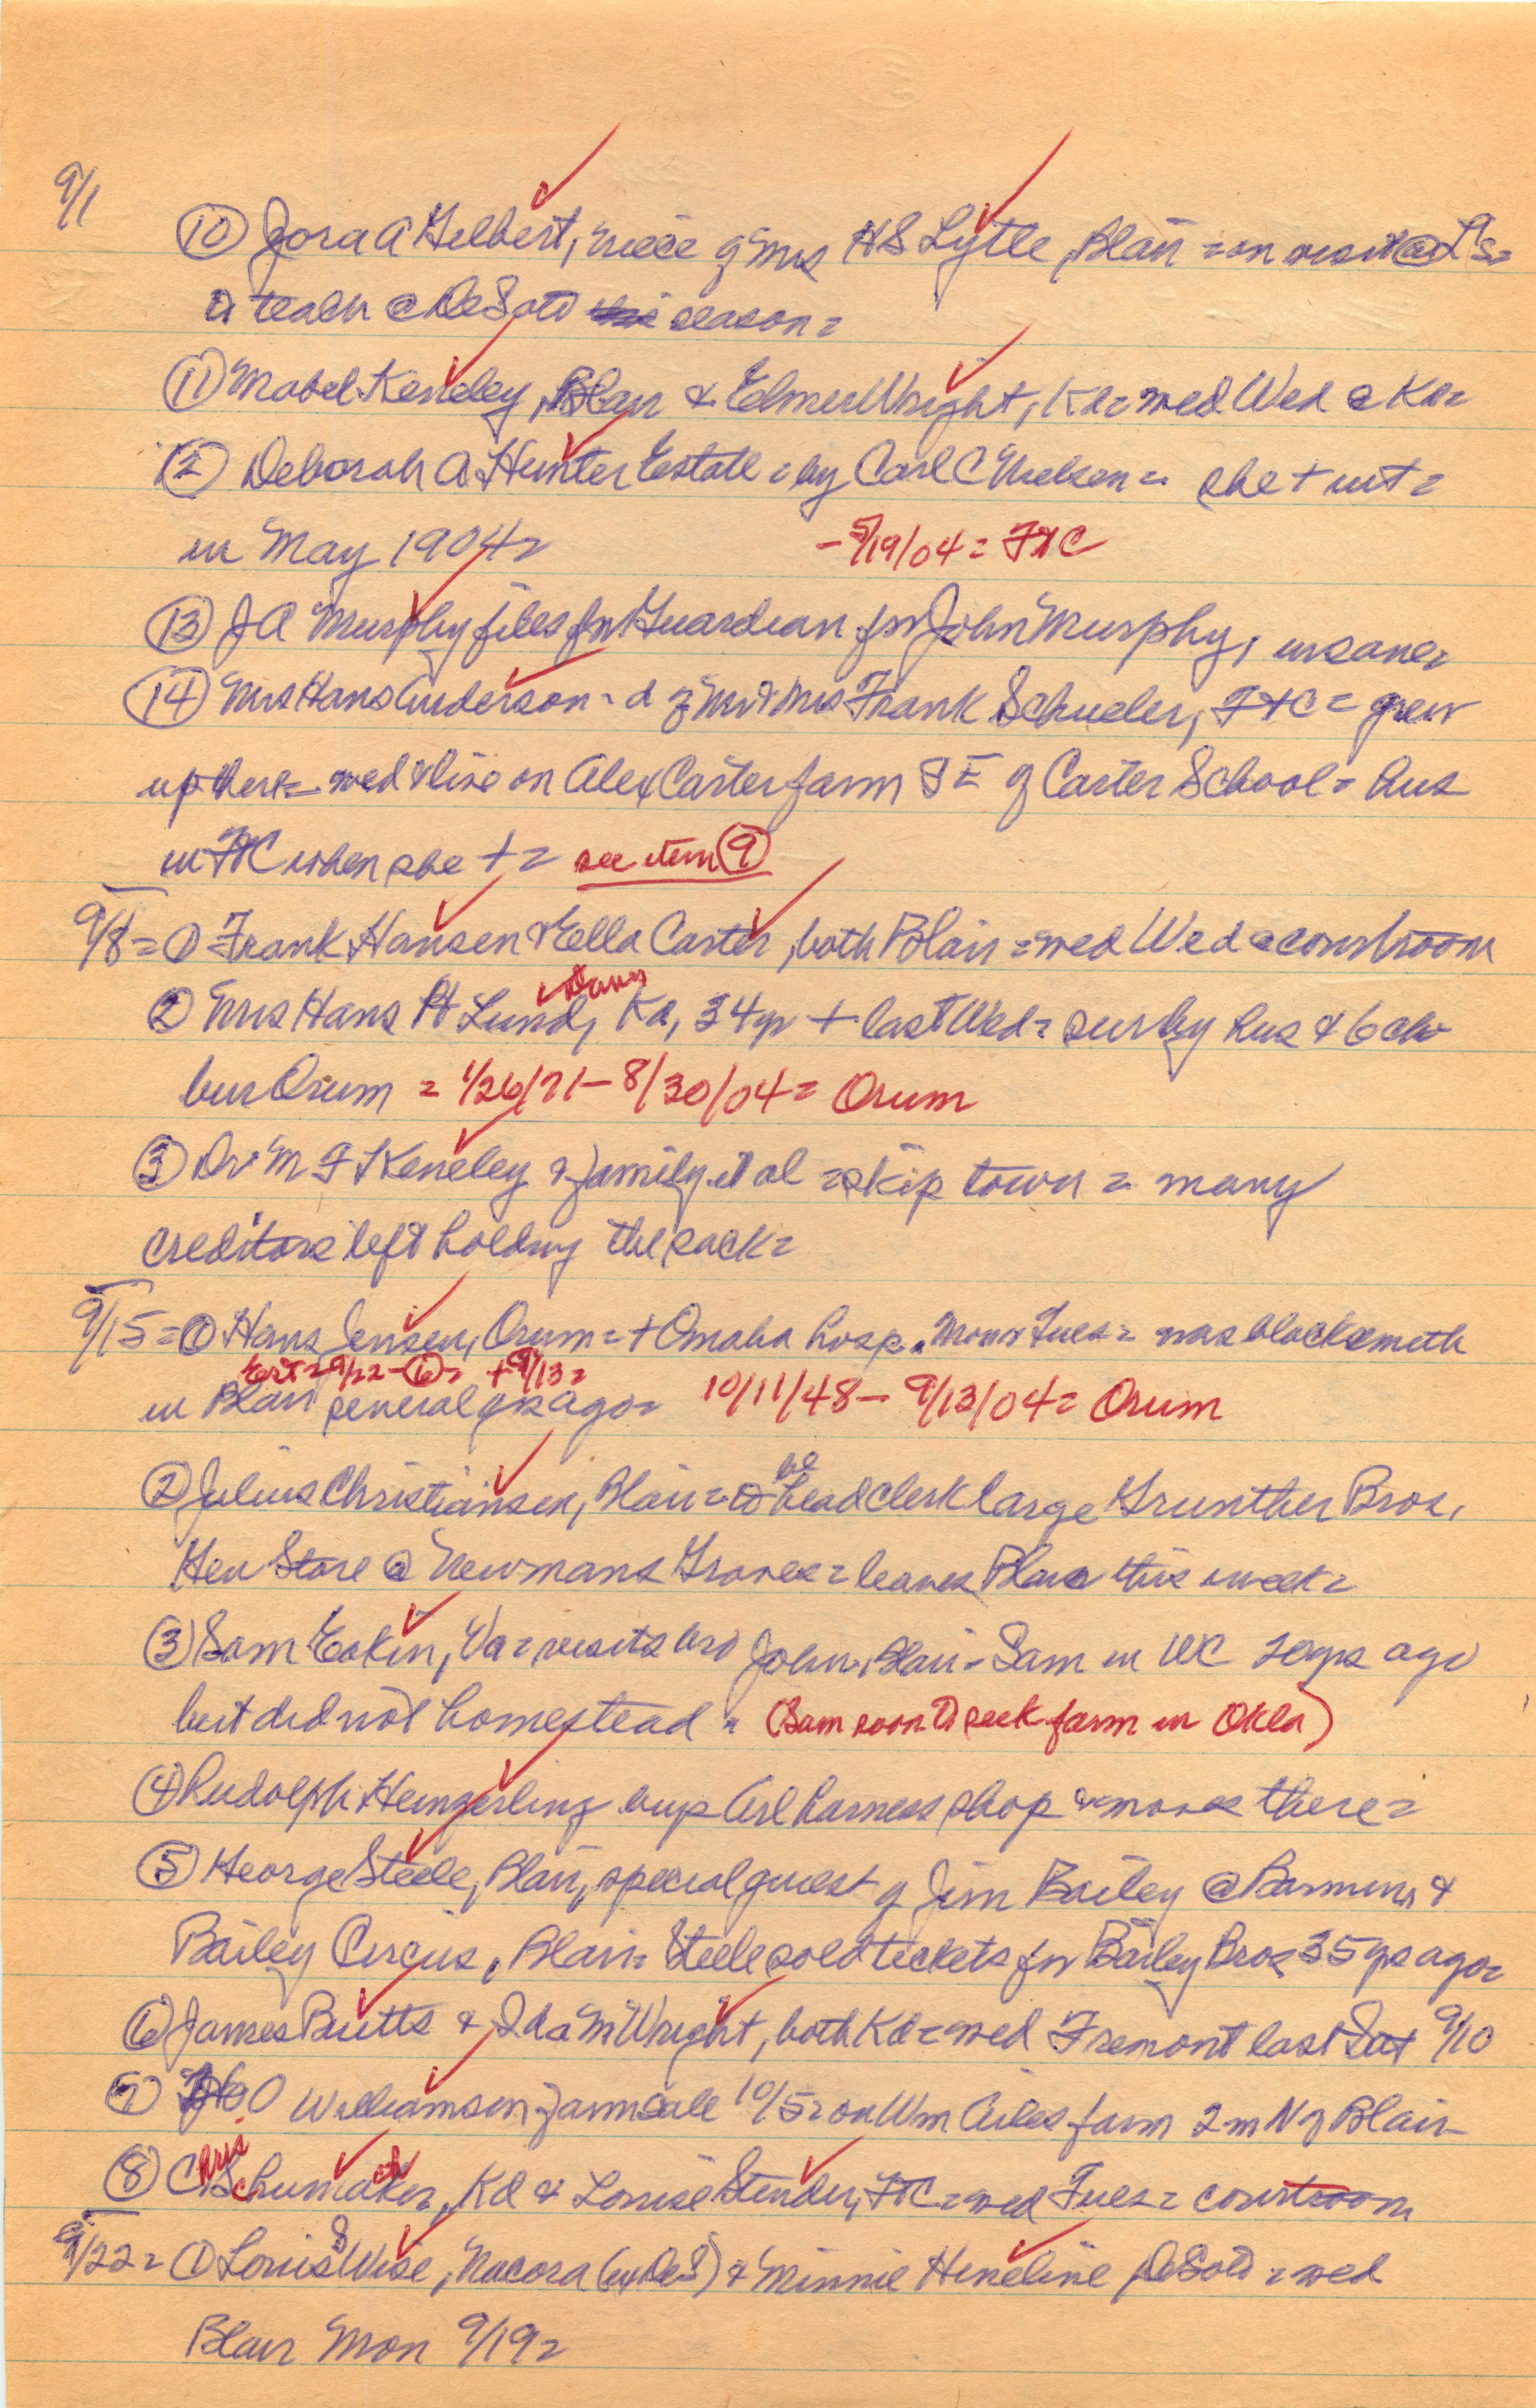 9/1
⑩ Zora A Gelbert, niece of Mrs H S Lytle, Blair = on visit @ L's =
to teach @ DeSoto season =
⑪ Mabel Keneley, Blair & Elmer Wright, Kd = wed Wed @ Kd =
⑫ Deborah A Hunter Estate = by Carl C Nielsen = she + int =
in May 1904 = - 5/19/04 = FtC
⑬ J A Murphy files for Guardian for John Murphy, insane =
⑭ Mrs Hans Anderson = d of Mr & Mrs Frank Schueler, FtC = grew
up there = wed & live on Alex Carter farm SE of Carter School = hus
in FtC when she + = see item ⑨
9/8 = ① Frank Hansen & Ella Carter, both Blair = wed Wed @ courtroom
② Mrs Hans Pt Lund, Kd, 34yr + last Wed = sur by hus & 6 ch =
bur Orum = 1/26/71 - 8/30/04 = Orum
③ Dr M F Keneley & family et al = skip town = many
creditors left holding the sack =
9/15 = ① Hans Jensen, Orum = + Omaha hosp. Mon or Tues = was blacksmith
9/22 - ⑥ = + 9/13 =
in Blair several yrs ago = 10/11/48 - 9/13/04 = Orum
② Julius Christiansen, Blair = to be head clerk large Grunther Bros,
Gen Store @ Newmans Grove = leaves Blair this week =
③ Sam Eakin, Va = visits bro John, Blair = Sam in WC 20yrs ago
but did not homestead = (Sam soon to seek farm in Okla)
④ Rudolph Hengerling buys Arl harness shop & moves there =
⑤ George Steele, Blair, special guest of Jim Bailey @ Barnum &
Bailey Circus, Blair = Steele sold tickets for Bailey Bros 35yrs ago =
⑥ James Butts & Ida M Wright, both Kd = wed Fremont last Sat 9/10
⑦ O Williamson farm sale 10/5 = on Wm Ailes farm 2m N of Blair -
⑧ Chris Schumacher, Kd & Louise Stender, FtC = wed Tues = courtroom
9/22 = ① Louis S Wise, Nacora (ex DeS) & Minnie Hineline, DeSoto = wed
Blair Mon 9/19 =